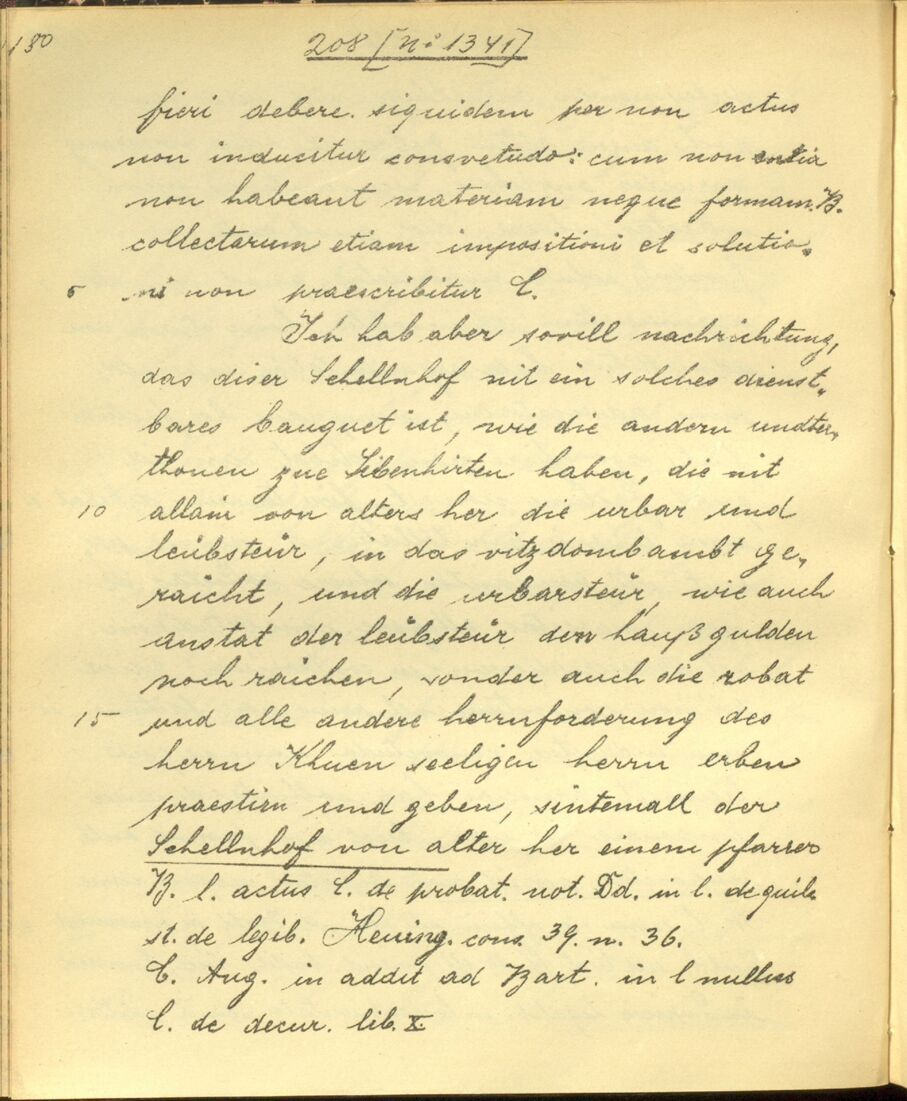 180
208 [Nº 1341]
fieri debere. siquidem per non actus
non inducitur consvetudo: cum non entia
non habeant materiam neque formam. B.
collectarum etiam impositioni et solutio„
5 ni non praescribitur C.
Ich hab aber sovill nachrichtung,
das diser Schellnhof nit ein solches dienst„
bares bauguet ist, wie die andern undter„
thonen zue Sibenhirten haben, die nit
10 allain von alters her die urbar und
leübsteür, in das vitzdombambt ge„
raicht, und die urbarsteür, wie auch
anstat der leübsteür den haußgulden
noch raichen, sonder auch die robat
15 und alle andere herrnforderung des
herrn Khuen seeligen herrn erben
praestirn und geben, sintemall der
Schellnhof von alter her einem pfarrer
B. l. actus C. de probat. not. Dd. in l. de quib.
st. de legib. Hening. cons. 39. n. 36.
C. Aug. in addit ad Bart. in l nullus
C. de decur. lib. X.